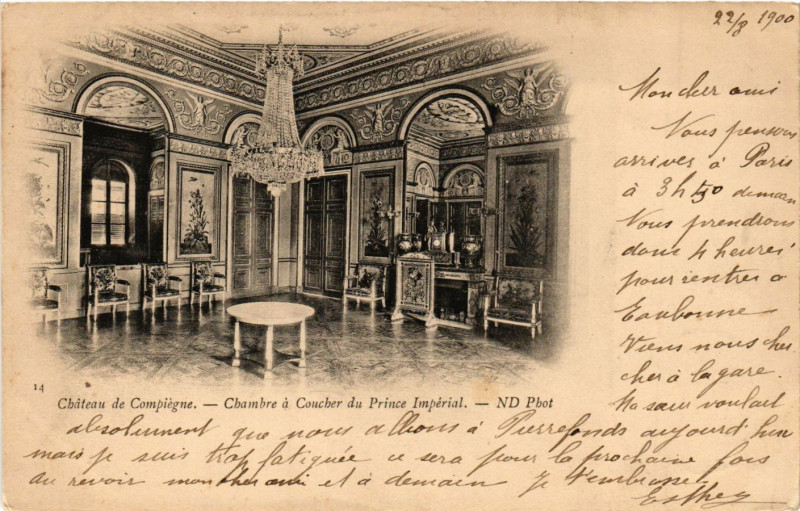 22/8 1900
Mon cher ami
Nous pensons
arriver à Paris
à 3h50 demain
Nous prendrons
donc 4 heures
pour rentrer a
Eaubonne
Viens nous cher
cher à la gare.
Ma sœur voulait
absolument que nous allions à Pierrefonds aujourd'hui
mais je suis trop fatiguée ce sera pour la prochaine fois
au revoir mon cher ami et à demain je t'embrasse.
Esther
14
Château de Compiègne. — Chambre à Coucher du Prince Impérial. — ND Phot